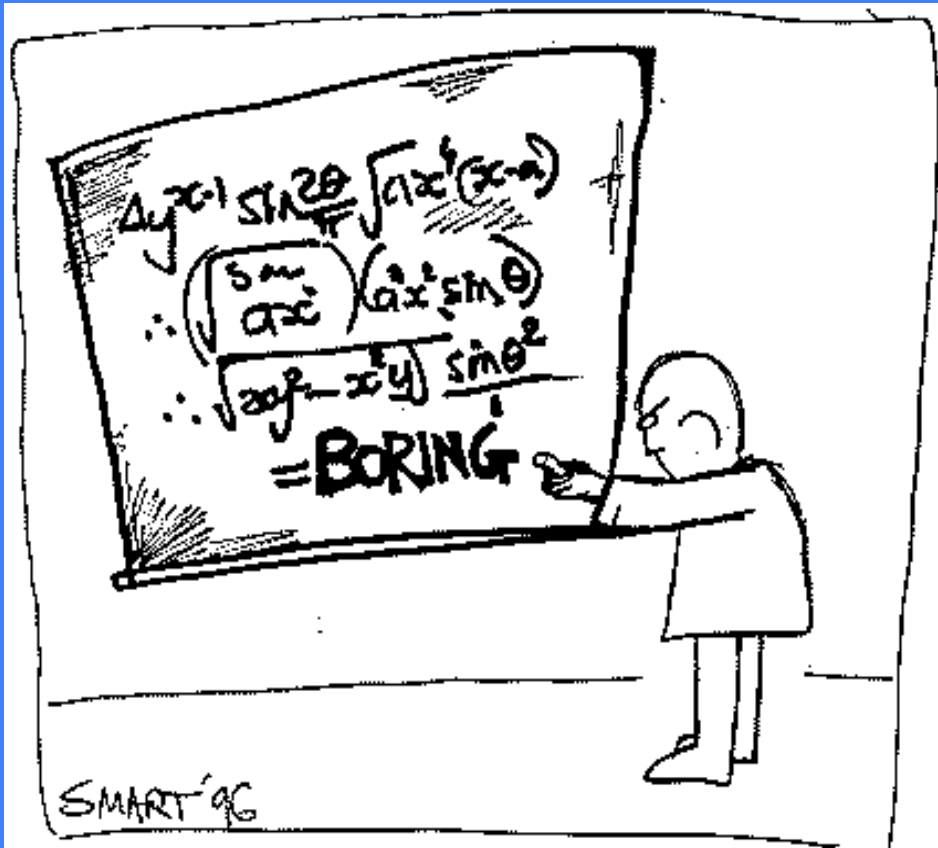 Δy^x-1 sin 2θ/π √ax⁴(x-a)
∴ (√ ax² )(a²x² sin θ)
∴ √(xy² - x²y) sin θ²
= BORING
SMART '96